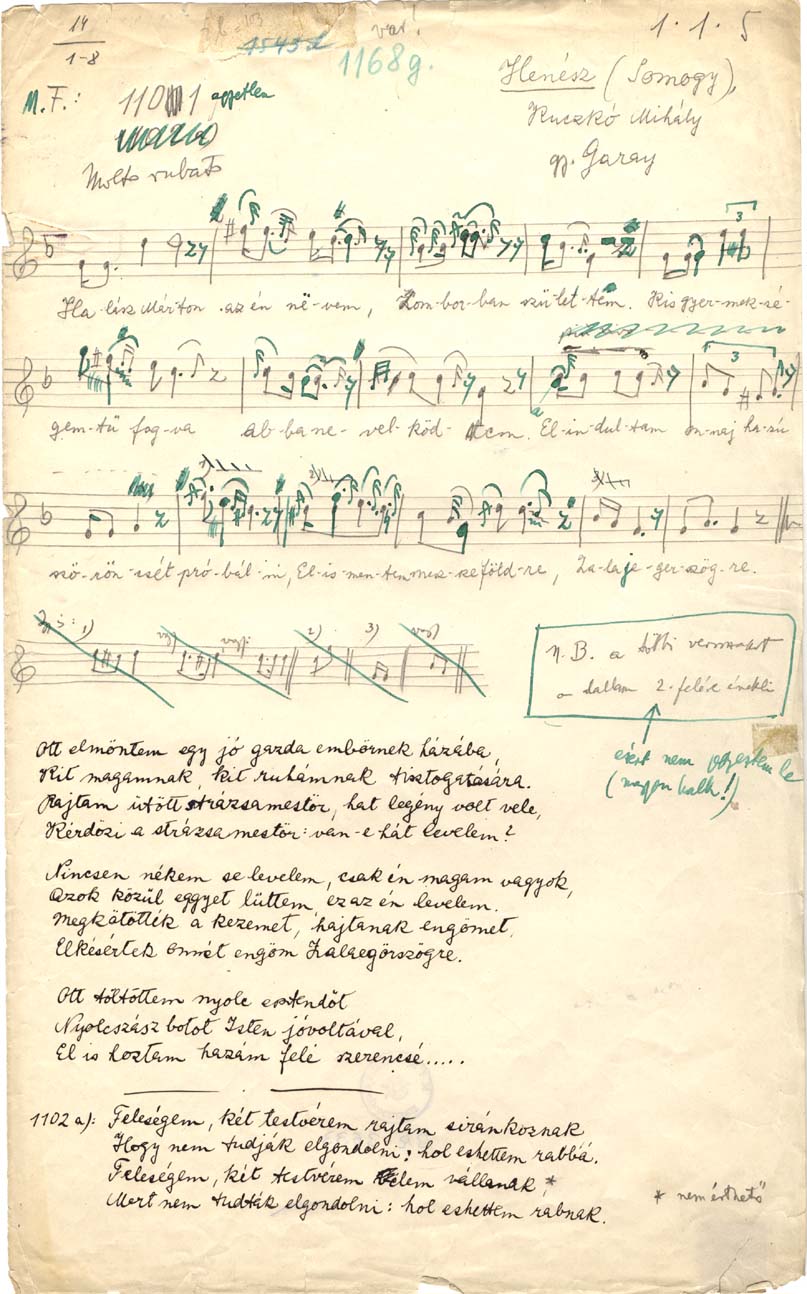 14
1-8
1543d
var!
1168g.
1. 1. 5
M. F.: 1101 egyetlen
Henész (Somogy),
Kuczkó Mihály
gy. Garay
Molto rubato
Ha-lász Márton az én në-vem, Zom-bor-ban szü-let-tem. Kis gyer-mek-sé-
3
gem-tü fog-va ab-ba ne-vel-köd-tem. El-in-dul-tam on-naj ha-zú
3
szö-rön-csét pró-bál-ni, El-is-men-tem mesz-sze föld-re, Za-la-je-ger-szög-re.
1) vagy vagy: 2) 3) vagy
N. B. a többi versszakot
a dallam 2. felére énekli
ezért nem
(nagyon halk!)
Ott elmöntem egy jó gazda embörnek házába,
Kit magamnak, kit ruhámnak tisztogatására.
Rajtam ütött strázsamestör, hat legény volt vele,
Kérdözi a strázsamestör: van-e hát levelem?
Nincsen nékem se levelem, csak én magam vagyok,
Azok közül eggyet lüttem, ez az én levelem.
Megkötötték a kezemet, hajtanak engömet,
Elkésértek önnét engöm Zalaegörszögre.
Ott töltöttem nyolc esztendőt
Nyolcszász botot Isten jóvoltával,
El is hoztam hazám felé szerencsé.....
1102 a): Feleségem, két testvérem rajtam siránkoznak
Hogy nem tudják elgondolni: hol eshettem rabbá.
Feleségem, két testvérem vélem vállanak,*
Mert nem tudták elgondolni: hol eshettem rabnak.
* nem érthető